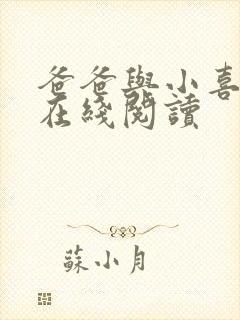 爸爸與小喜
在綫閱讀
蘇小月